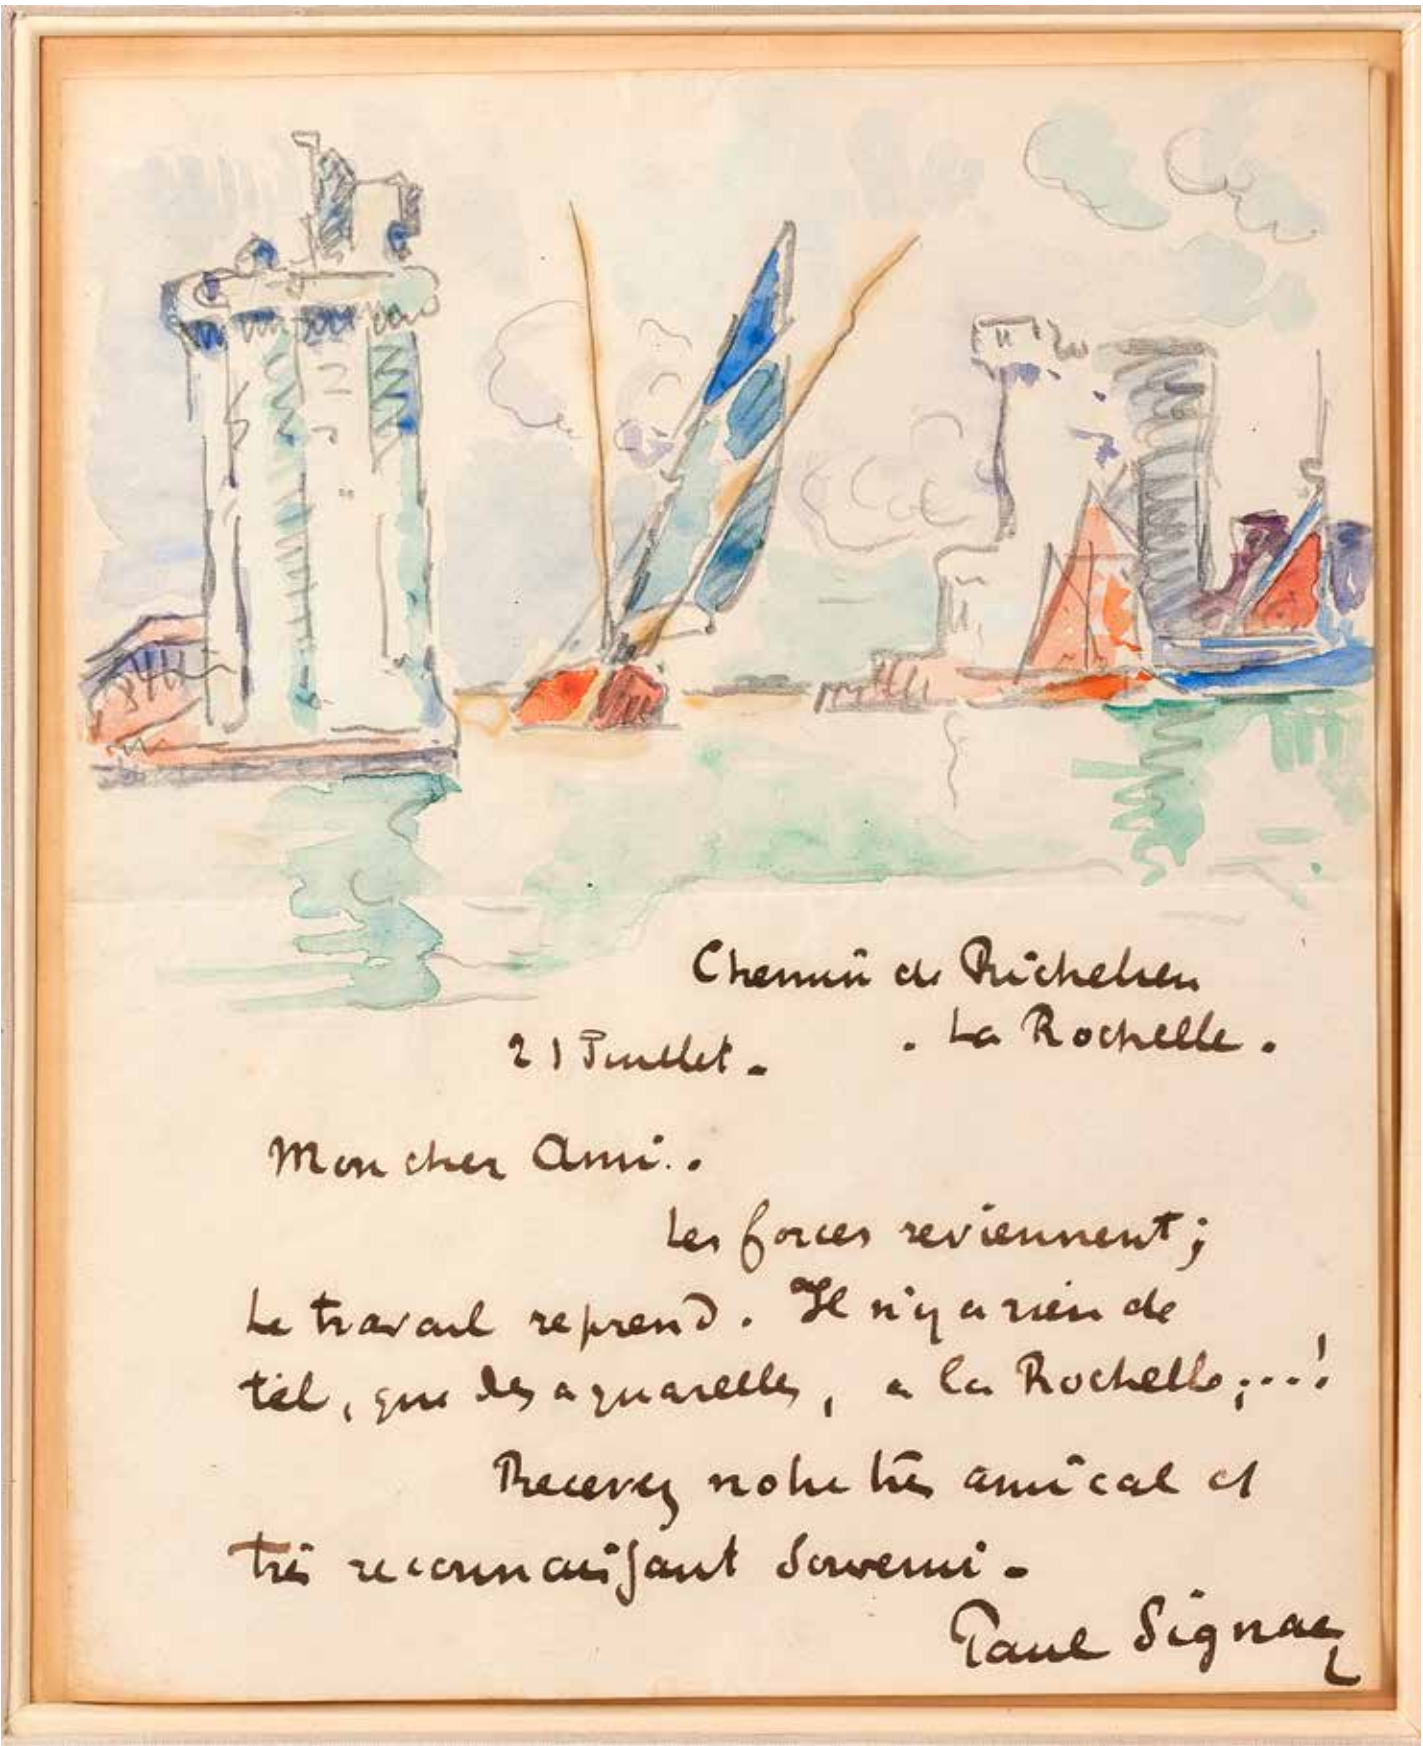 Chemin de Richelieu
. La Rochelle .
21 Juillet -
Mon cher Ami..
Les forces reviennent ;
Le travail reprend . Il n'y a rien de
tel, que des aquarelles, a la Rochelle,...!
Recevez notre très amical et
très reconnaissant Souvenir -
Paul Signac